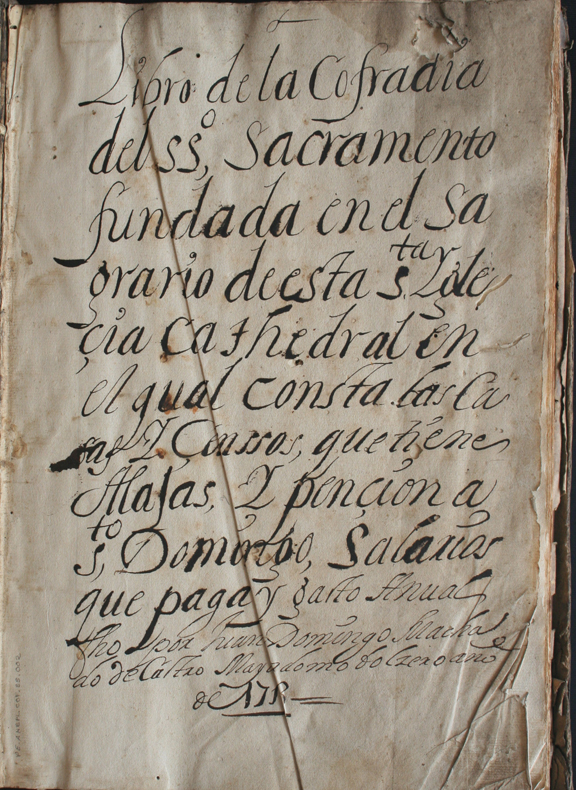 Libro de la Cofradia
del SS.º Sacramento
fundada en el Sa
grario de esta S.ta Igle
çia Cathedral en
el qual consta las Ca
sas Y Censsos, que tiene
Alajas, Y pencion a
S.to Domingo, Salarios
que paga y gasto Anual
fho por Juan Domingo Macha
do de Castro Mayordomo
de